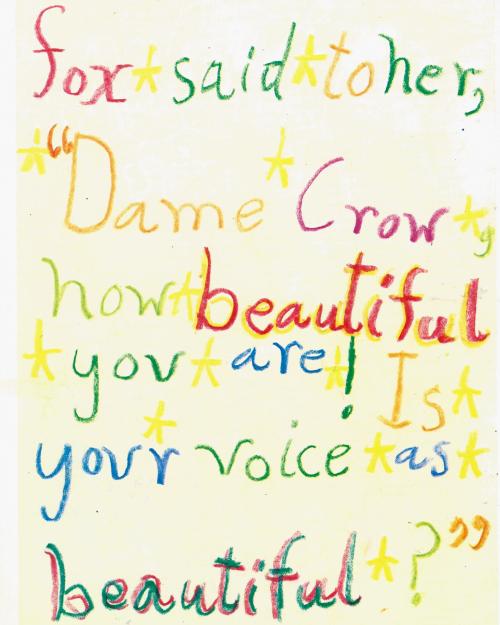 fox said to her,
“Dame Crow,
how beautiful
you are! Is
your voice as
beautiful?”